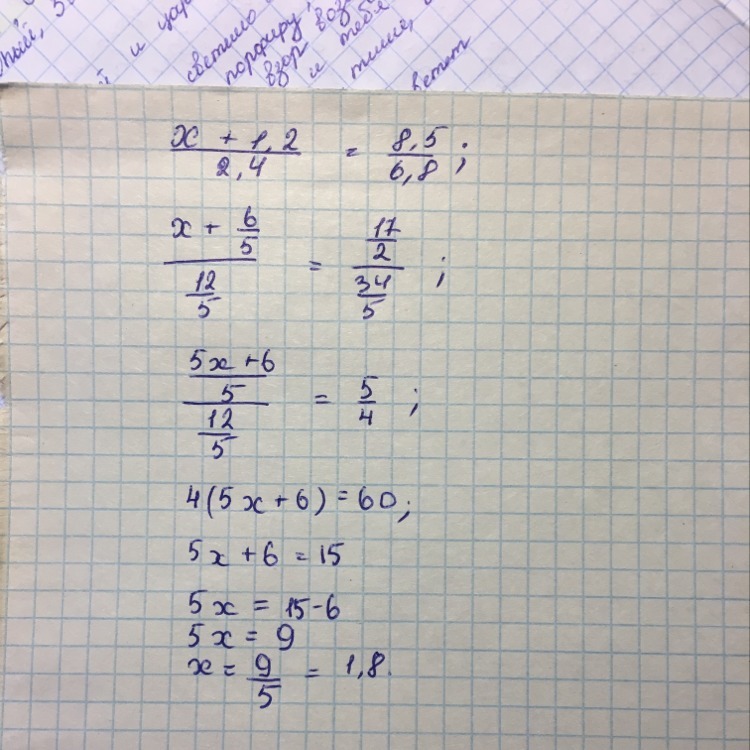 и цар
светило
порфиру,
взор возв
и тебя
тиши,
ветет
x + 1,2 / 2,4 = 8,5 / 6,8 ;
x + 6/5 / 12/5 = 17/2 / 34/5 ;
5x + 6 / 5 / 12/5 = 5/4 ;
4(5x + 6) = 60;
5x + 6 = 15
5x = 15 - 6
5x = 9
x = 9/5 = 1,8.